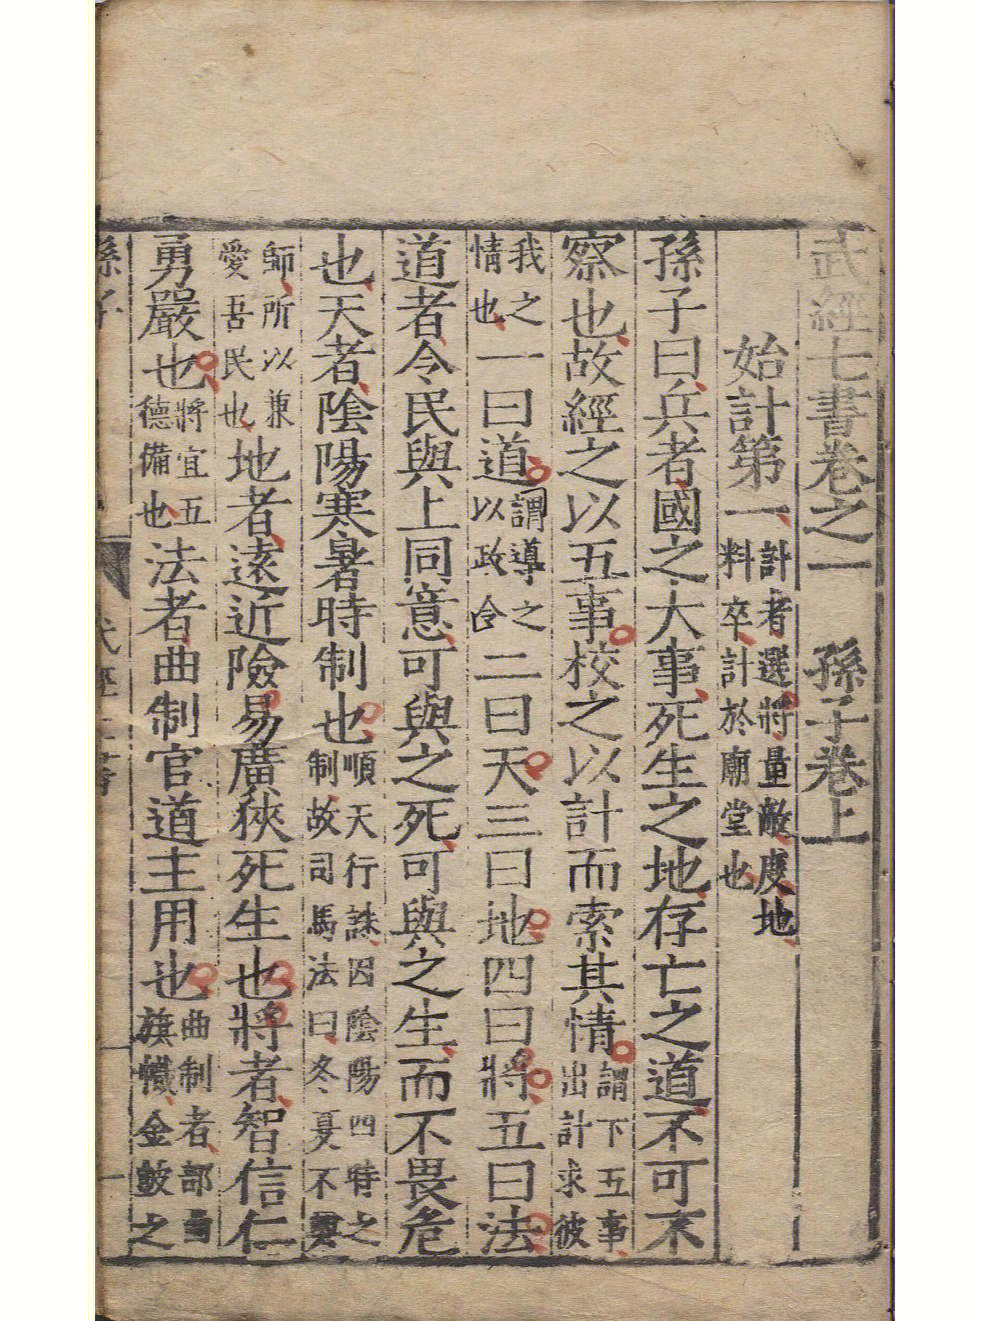 武經七書卷之一　孫子卷上
始計第一 計者選將量敵度地料卒計於廟堂也
孫子曰兵者國之大事死生之地存亡之道不可不
察也故經之以五事校之以計而索其情 謂下五事出計求彼
我之情也 一曰道 謂導之以政令 二曰天三曰地四曰將五曰法
道者令民與上同意可與之死可與之生而不畏危
也天者陰陽寒暑時制也 順天行誅因陰陽四時之制故司馬法曰冬夏不興
師所以兼愛吾民也 地者遠近險易廣狹死生也將者智信仁
勇嚴也 將宜五德備也 法者曲制官道主用也 曲制者部曲旗幟金鼓之
孫子